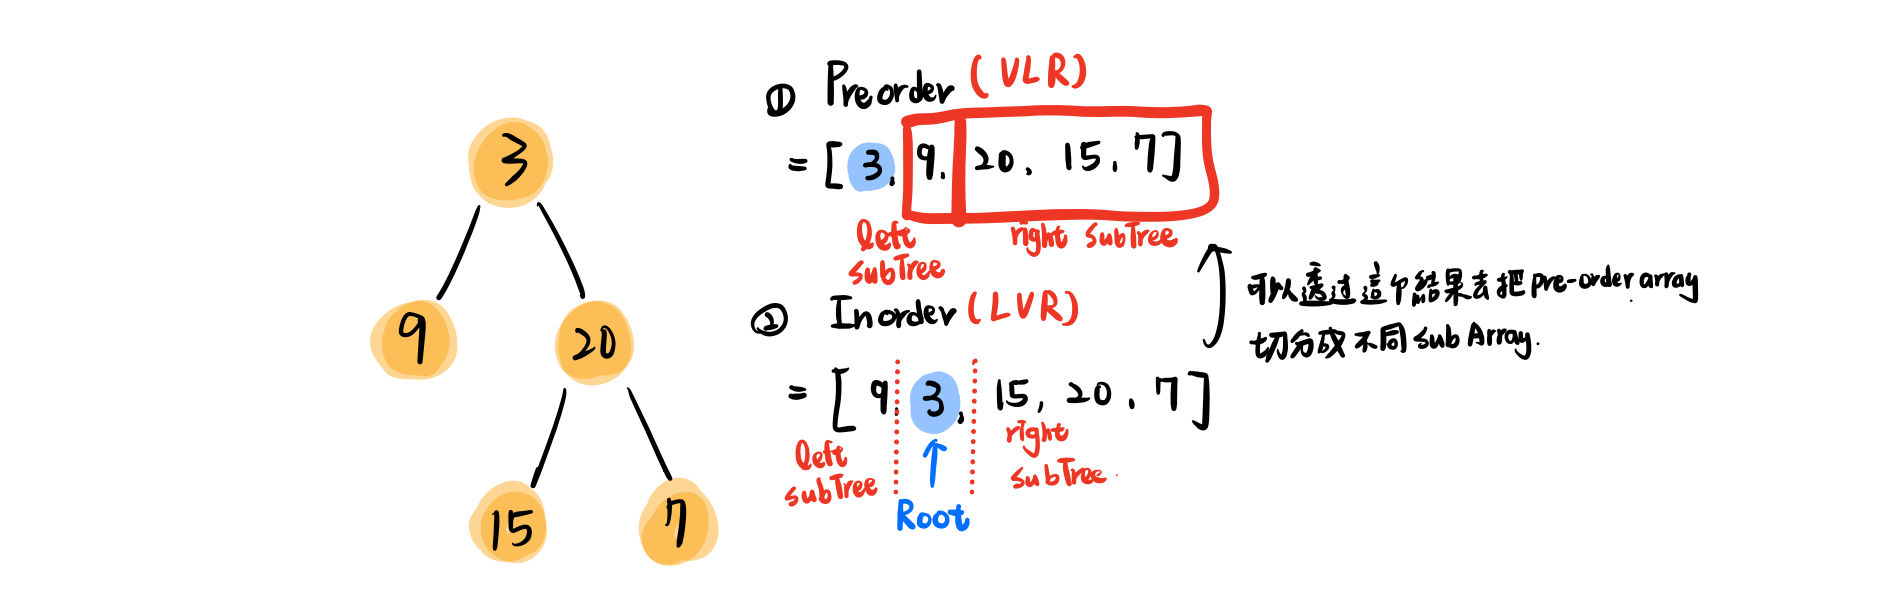 3
9
20
15
7
① Preorder (VLR)
= [3, 9, 20, 15, 7]
left
subTree
right SubTree
② Inorder (LVR)
= [9, 3, 15, 20, 7]
left
subTree
Root
right
subTree
可以透过這个結果去把 pre-order array
切分成不同 sub Array.